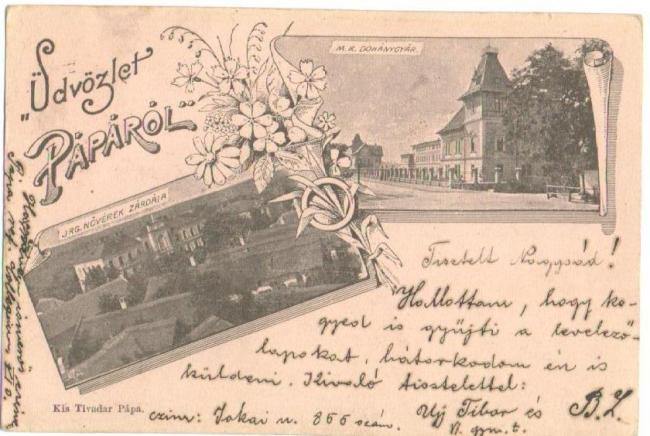 "Üdvözlet
PÁPÁRÓL"
M. K. DOHÁNYGYÁR.
IRG. NŐVÉREK ZÁRDÁJA
Tisztelt Nagysád!
Hallottam, hogy ko-
gyed is gyűjti a levelező-
lapokat, bátorkodom én is
küldeni. Kiváló tisztelettel:
czim: Jokai u. 866 szám. Uj Tibor és B. L.
V. gym. t.
Kis Tivadar Pápa.